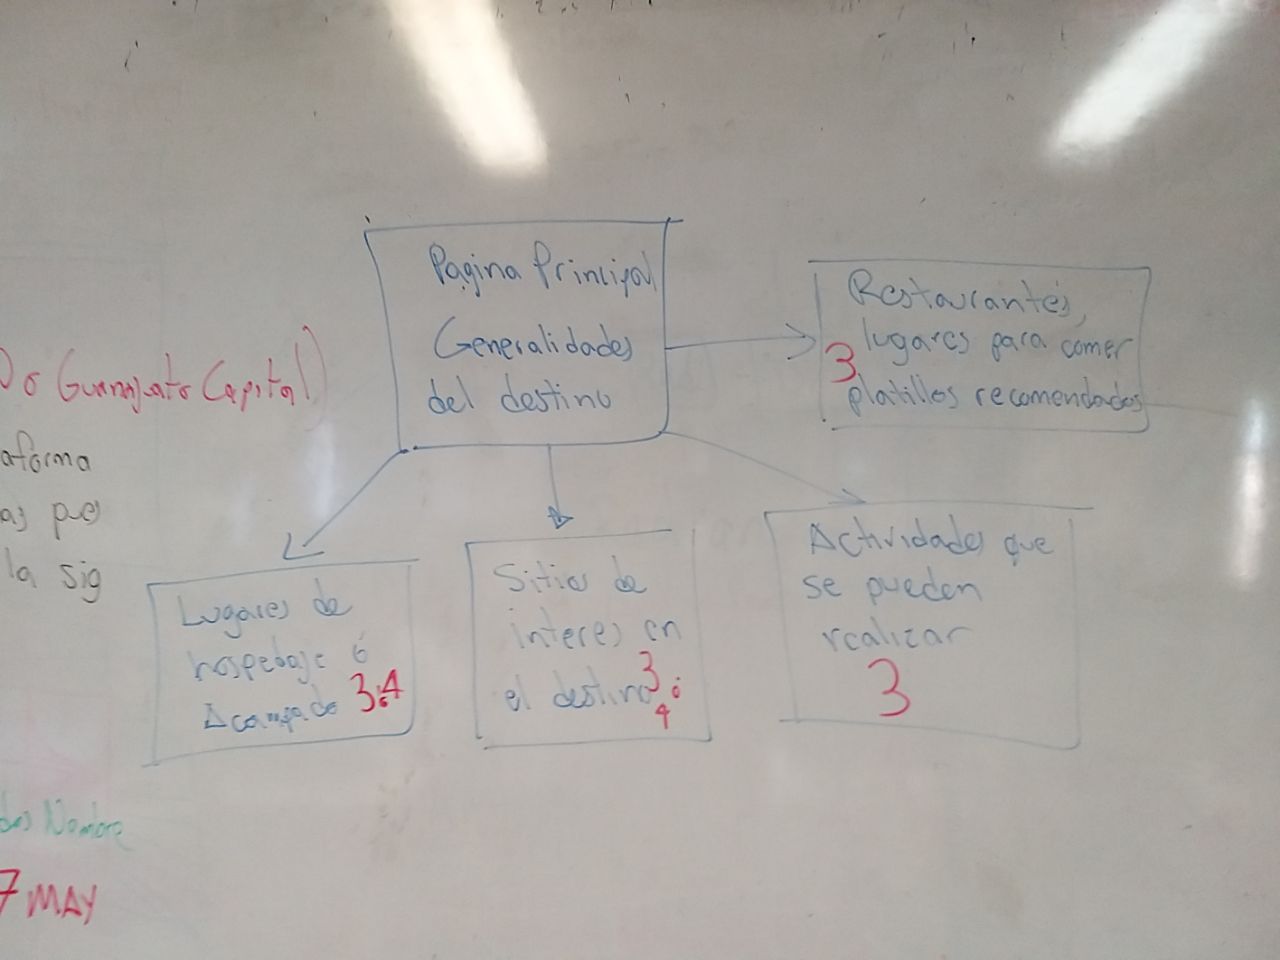 Pagina Principal
Generalidades
del destino
Restaurantes,
lugares para comer
3
platillos recomendados
o Guanajuato Capital)
aforma
as pue
la sig
Lugares de
hospedaje ó
Acampado 3ó4
Sitios de
interes en
el destino 3 ó
4
Actividades que
se pueden
realizar
3
Nombre
7 MAY